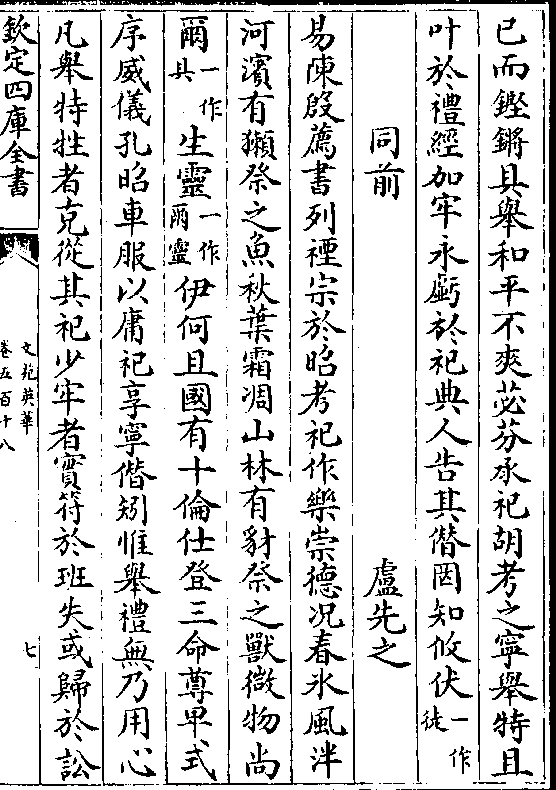 已而鏗鏘具舉和平不爽苾芬承祀胡考之寧舉特且
叶於禮經加牢永虧於祀典人告其僭罔知攸伏一作徒
同前 盧先之
易陳殷薦書列禋宗於昭考祀作樂崇德况春氷風泮
河濱有獺祭之魚秋葉霜凋山林有豺祭之獸微物尚
爾一作具生靈一作爾靈伊何且國有十倫仕登三命尊卑式
序威儀孔昭車服以庸祀享寧僭矧惟舉禮無乃用心
凡舉特牲者克從其祀少牢者實符於班失或歸於訟
欽定四庫全書
文苑英華
卷五百十八
七